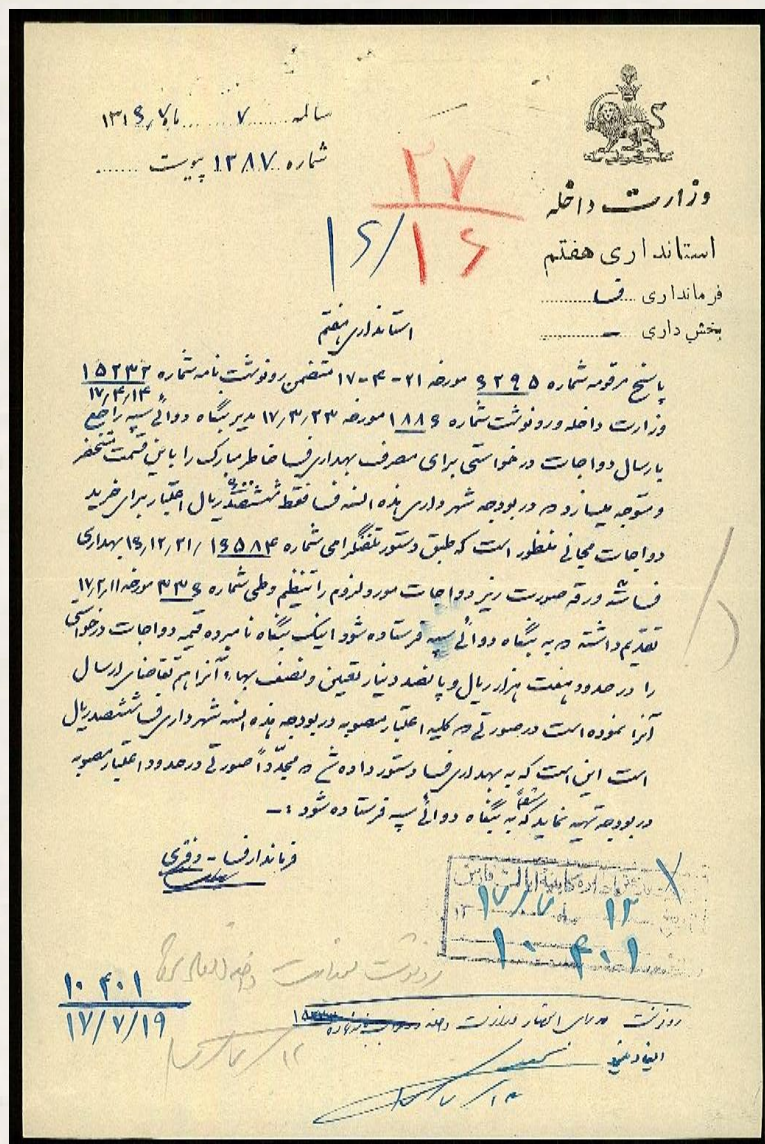 وزارت داخله
استانداری هفتم
فرمانداری فسا
بخش داری -
شماره ۱۳۸۷ پیوست
۲۷
۱۶
۱۶/
استانداری هفتم
پاسخ مرقومه شماره ۶۲۹۵ مورخه ۲۱-۴-۱۷ متضمن رونوشت نامه شماره ۱۵۲۳۲
۱۷/۴/۱۴
وزارت داخله و رونوشت شماره ۱۸۸۶ مورخه ۱۷/۳/۲۳ مدیر بنگاه دوائی سپه راجع
بارسال دواجات درخواستی برای مصرف بهداری فسا خاطر مبارک را باین قسمت مستحضر
و متوجه میسازد که در بودجه شهرداری هذه السنه فسا فقط ششصد ریال اعتبار برای خرید
۶۰۰
دواجات مجانی منظور است که طبق دستور تلفنگرامی شماره ۱۶۵۸۴ /۱۶/۱۲/۲۱ بهداری
فسا سه ورقه صورت ریز دواجات مورد لزوم را تنظیم و طی شماره ۳۳۶ مورخه ۱۷/۲/۱۱
تقدیم داشته که به بنگاه دوائی سپه فرستاده شود اینک بنگاه نامبرده قیمه دواجات درخواستی
را در حدود هفت هزار ریال و پانصد دینار تعیین و نصف بهاء آنرا هم تقاضای ارسال
آنرا نموده است در صورتی که کلیه اعتبار مصوبه در بودجه هذه السنه شهرداری فسا ششصد ریال
است این است که به بهداری فسا دستور داده شد که مجدداً صورتی در حدود اعتبار مصوبه
در بودجه تهیه نماید که به بنگاه دوائی سپه فرستاده شود :-
فرماندار فسا -
۱۳
۱۷/۷
۱۰۴۰۱
رونوشت
۱۰۴۰۱
۱۷/۷/۱۹
رونوشت برای استحضار وزارت داخله